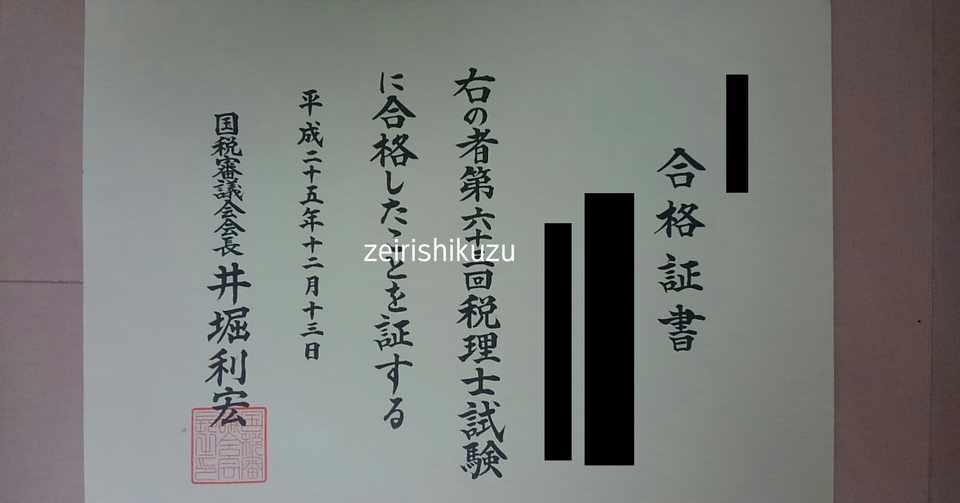 合格証書
右の者第六十三回税理士試験
に合格したことを証する
平成二十五年十二月十三日
国税審議会会長 井堀利宏
zeirishikuzu